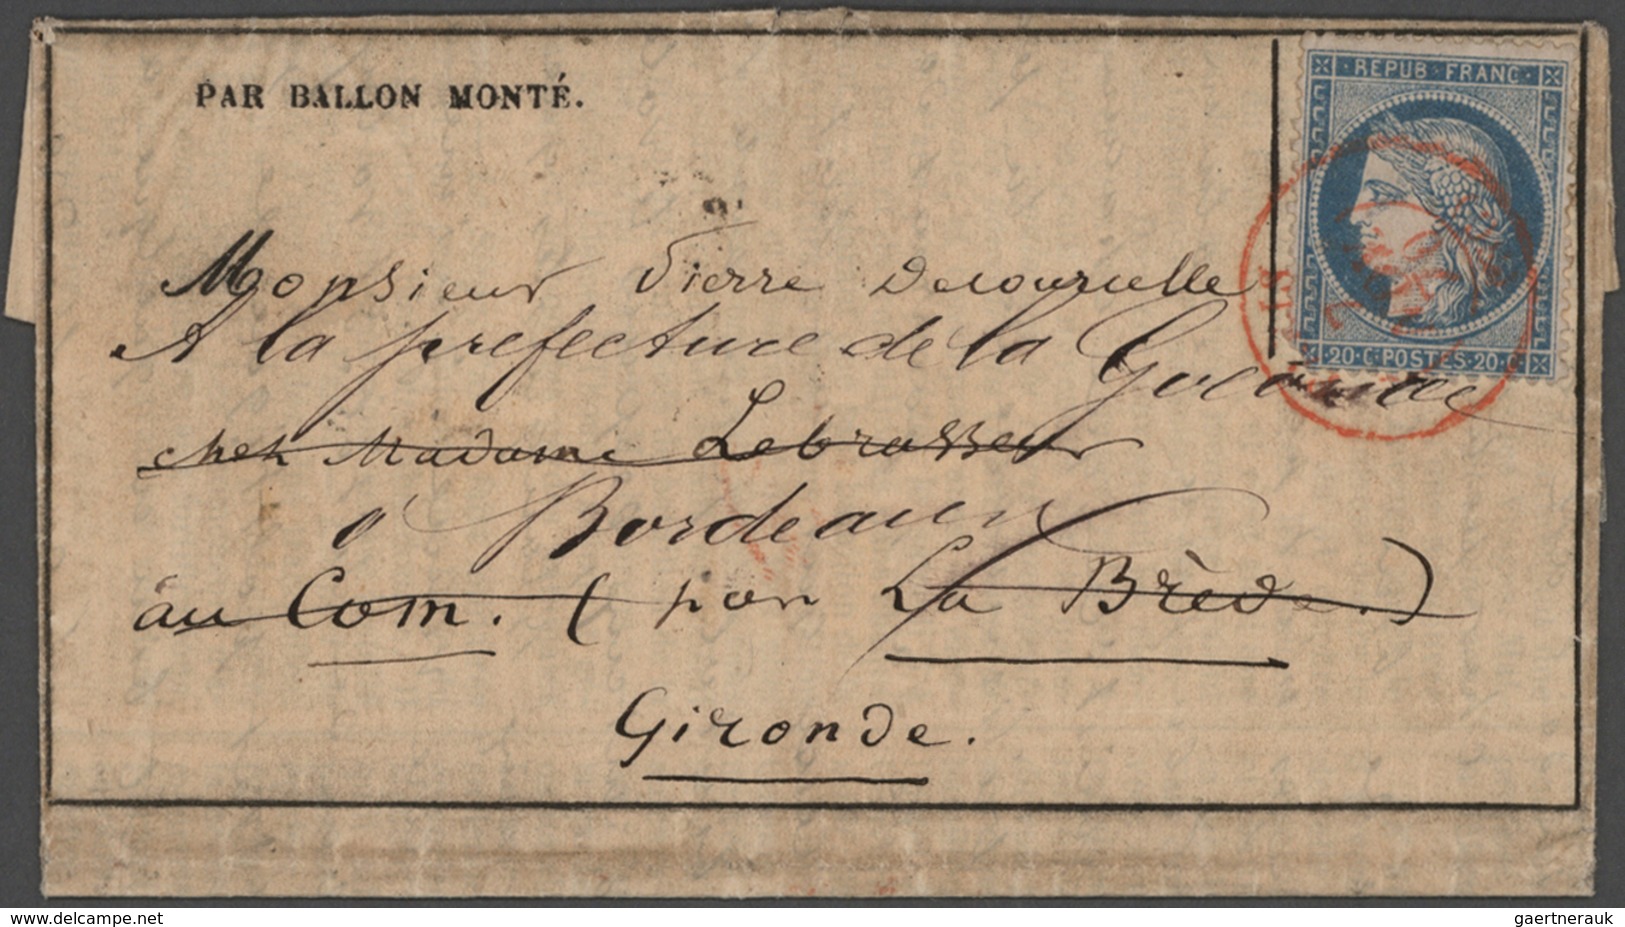 PAR BALLON MONTÉ.
REPUB FRANC
20·C·POSTES·20·C
Monsieur Pierre Decourcelle
A la prefecture de la Gironde
chez Madame Lebrasseur
à Bordeaux
au Com. (par La Brède.)
Gironde.
www.delcampe.net
gaertnerauk